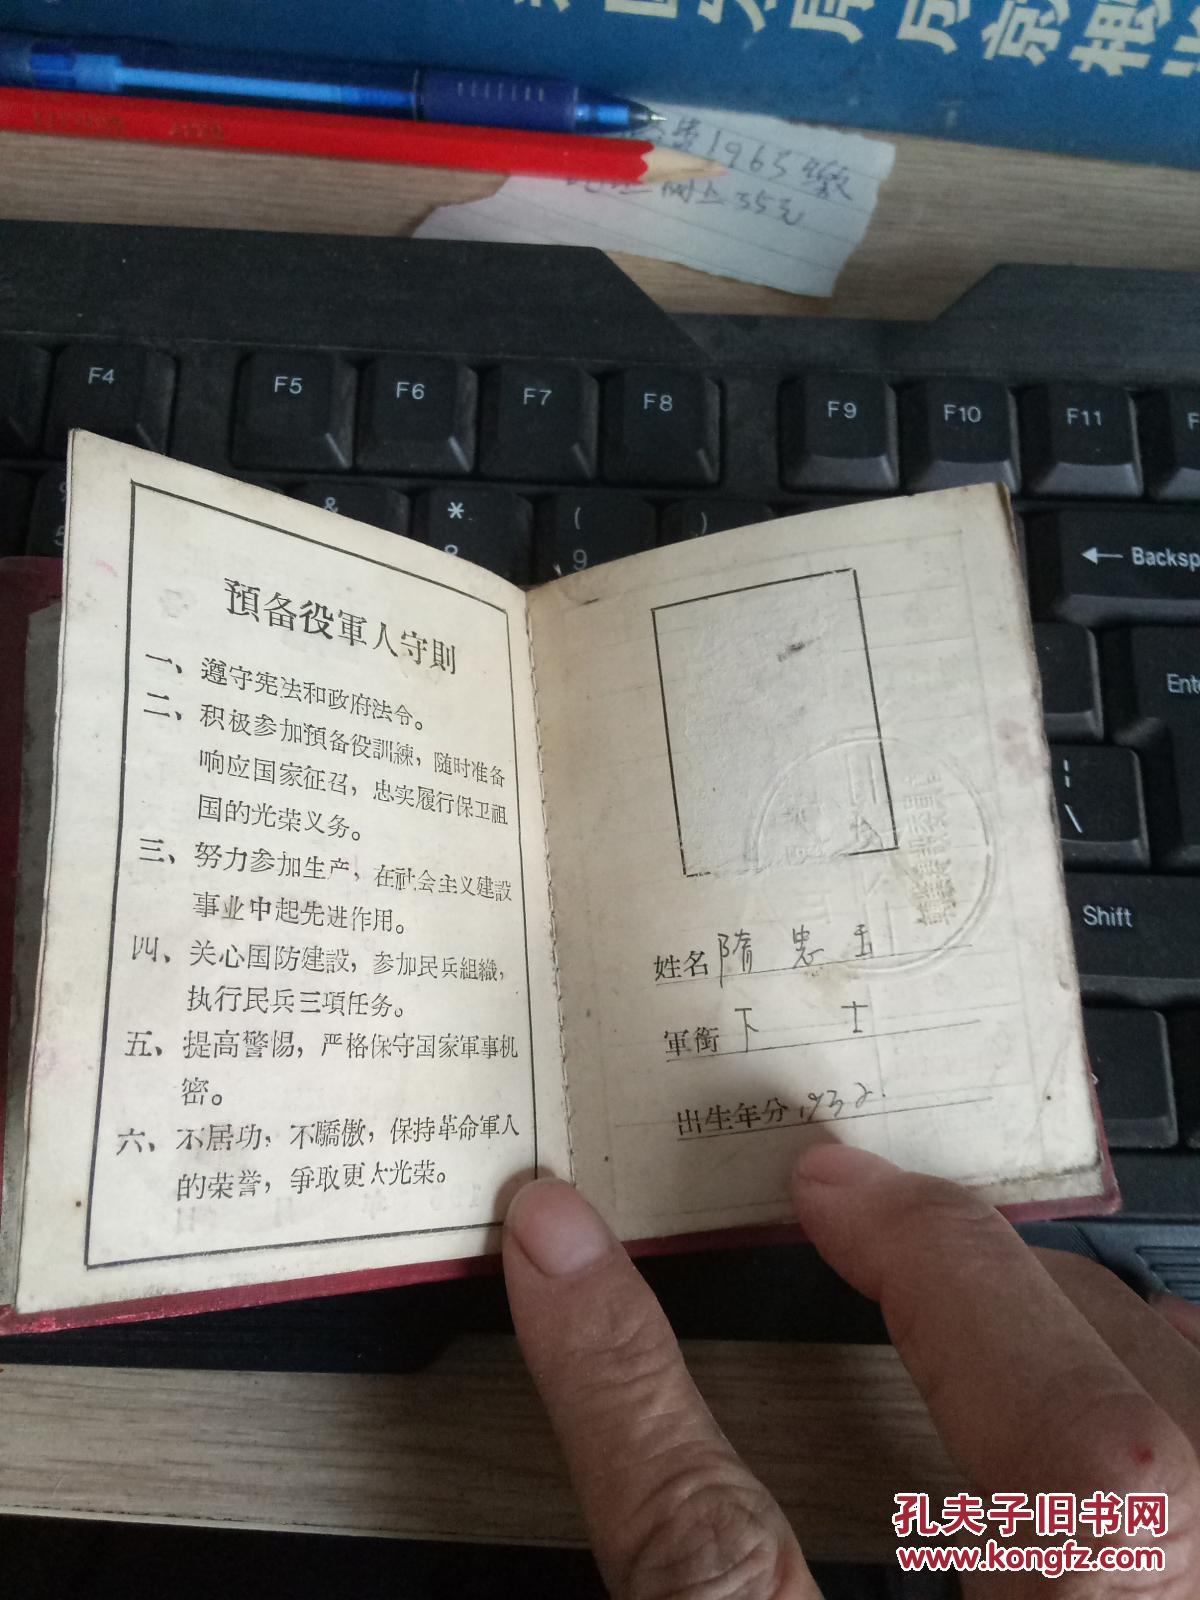 1963
35元
F4
F5
F6
F7
F8
F9
F10
F11
&
*
8
(
9
)
Backsp
Ente
Shift
預备役軍人守則
一、遵守宪法和政府法令。
二、积极参加預备役訓練，随时准备
响应国家征召，忠实履行保卫祖
国的光荣义务。
三、努力参加生产，在社会主义建設
事业中起先进作用。
四、关心国防建設，参加民兵組織，
执行民兵三項任务。
五、提高警惕，严格保守国家軍事机
密。
六、不居功，不驕傲，保持革命軍人
的荣誉，爭取更大光荣。
姓名 隋忠玉
軍銜 下士
出生年分 1932.
孔夫子旧书网
www.kongfz.com